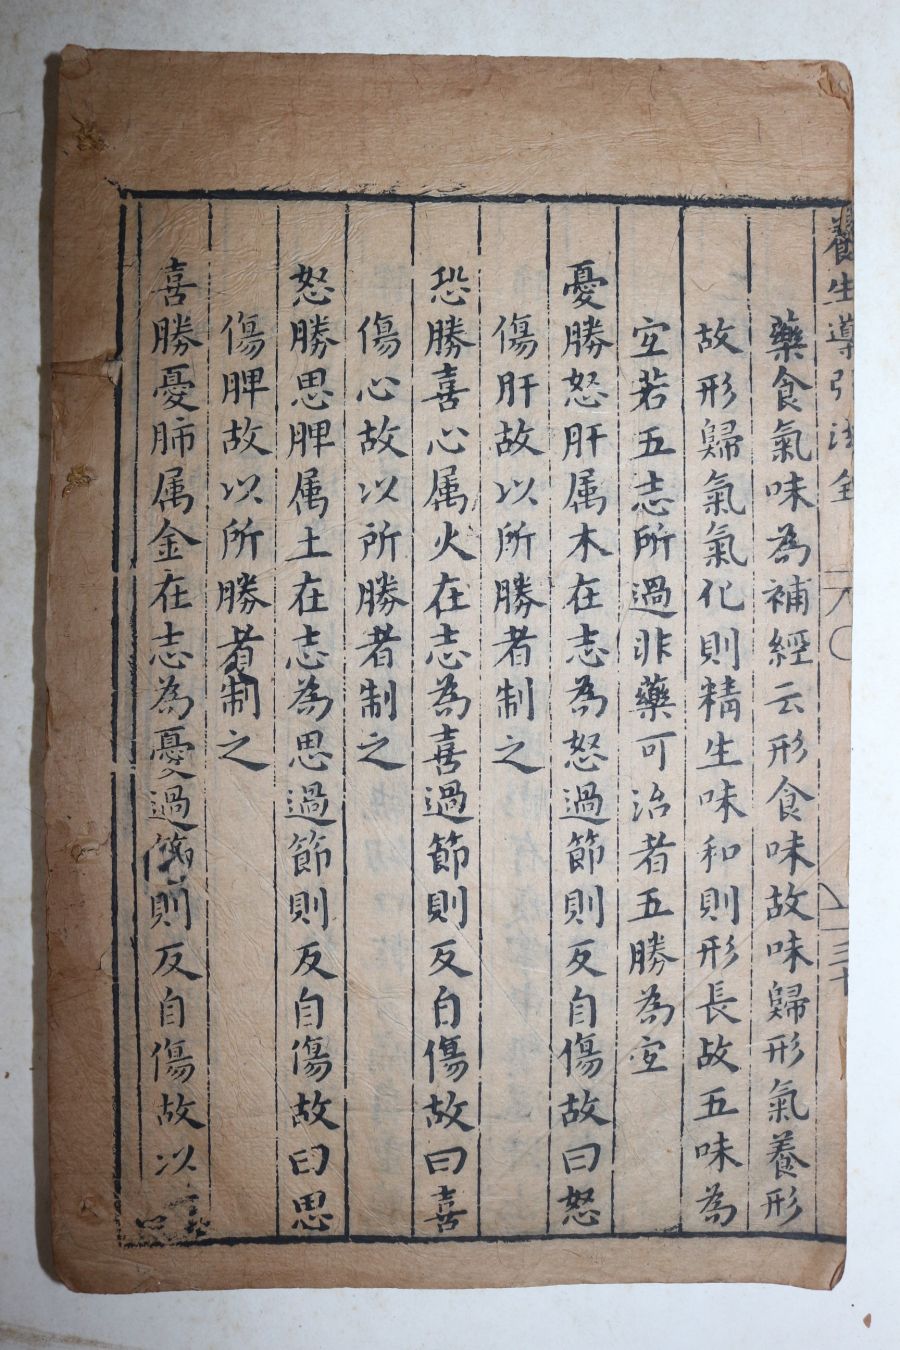 養生導引法全
三十
藥食氣味為補經云形食味故味歸形氣養形
故形歸氣氣化則精生味和則形長故五味為
宜若五志所過非藥可治者五勝為宜
憂勝怒肝属木在志為怒過節則反自傷故曰怒
傷肝故以所勝者制之
恐勝喜心属火在志為喜過節則反自傷故曰喜
傷心故以所勝者制之
怒勝思脾属土在志為思過節則反自傷故曰思
傷脾故以所勝者制之
喜勝憂肺属金在志為憂過節則反自傷故以